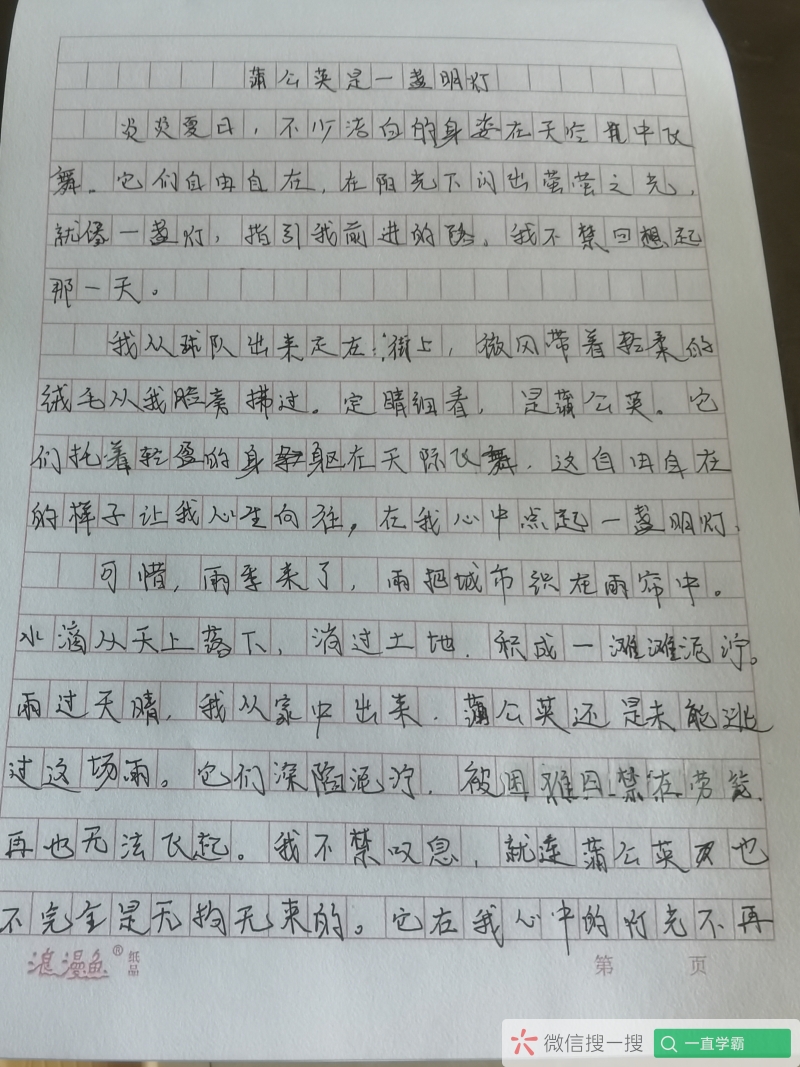 蒲公英是一盏明灯
炎炎夏日，不少洁白的身姿在天空中飞
舞。它们自由自在，在阳光下闪出萤萤之光，
就像一盏灯，指引我前进的路，我不禁回想起
那一天。
我从球队出来走在街上，微风带着轻柔的
绒毛从我脸旁拂过。定睛细看，是蒲公英。它
们托着轻盈的身躯在天际飞舞，这自由自在
的样子让我心生向往，在我心中点起一盏明灯，
可惜，雨季来了，雨把城市织在雨帘中。
水滴从天上落下，淌过土地，积成一滩滩泥泞。
雨过天晴，我从家中出来，蒲公英还是未能逃
过这场雨。它们深陷泥泞，被困难囚禁在劳笼，
再也无法飞起。我不禁叹息，就连蒲公英也
不完全是无拘无束的。它在我心中的灯光不再
浪漫鱼®纸品
第 页
微信搜一搜
一直学霸